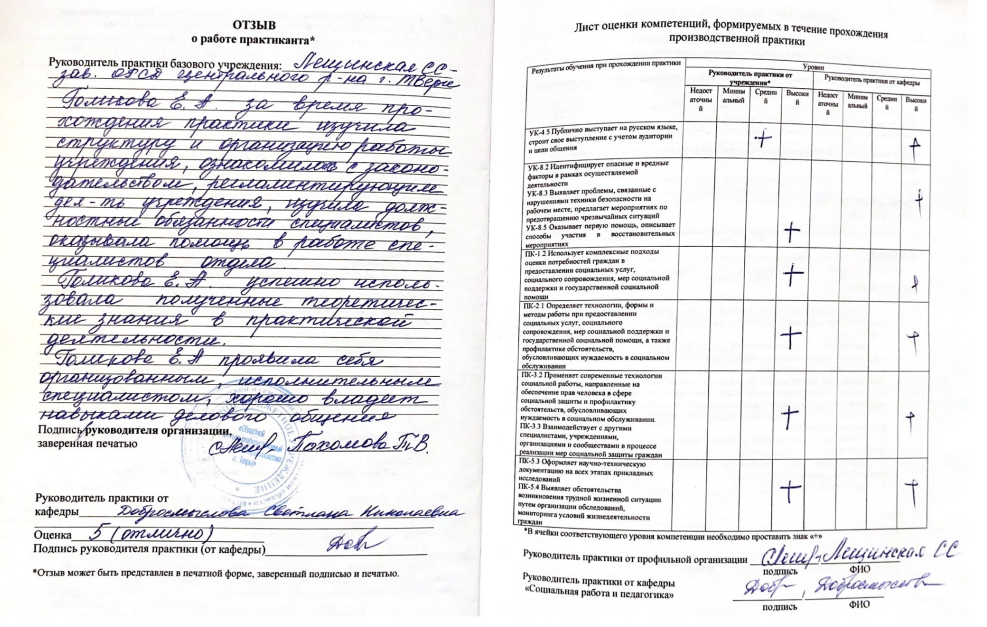 ОТЗЫВ
о работе практиканта*
Руководитель практики базового учреждения: Лещинская СС-
зав. ОФСД центрального р-на г. Твери
Голикова Е.А. за время про-
хождения практики изучила
структуру и организацию работы
учреждения, ознакомилась с законо-
дательством, регламентирующим
дея-ть учреждения, изучила долж-
ностные обязанности специалистов,
оказывала помощь в работе спе-
циалистов отдела
Голикова Е.А. успешно исполь-
зовала полученные теоретичес-
кие знания в практической
деятельности.
Голикова Е.А проявила себя
организованным, исполнительным
специалистом, хорошо владеет
навыками делового общения
Подпись руководителя организации,
заверенная печатью
Пахомова Т.В.
Руководитель практики от
кафедры Добросмыслова Светлана Николаевна
Оценка 5 (отлично)
Подпись руководителя практики (от кафедры)
*Отзыв может быть представлен в печатной форме, заверенный подписью и печатью.
Лист оценки компетенций, формируемых в течение прохождения
производственной практики
Результаты обучения при прохождении практики
Уровни
Руководитель практики от
учреждения*
Руководитель практики от кафедры
Недост
аточны
й
Миним
альный
Средни
й
Высоки
й
Недост
аточны
й
Миним
альный
Средни
й
Высоки
й
УК-4.5 Публично выступает на русском языке,
строит свое выступление с учетом аудитории
и цели общения
+ +
УК-8.2 Идентифицирует опасные и вредные
факторы в рамках осуществляемой
деятельности
УК-8.3 Выявляет проблемы, связанные с
нарушениями техники безопасности на
рабочем месте, предлагает мероприятиях по
предотвращению чрезвычайных ситуаций
УК-8.5 Оказывает первую помощь, описывает
способы участия в восстановительных
мероприятиях
+ +
ПК-1.2 Использует комплексные подходы
оценки потребностей граждан в
предоставлении социальных услуг,
социального сопровождения, мер социальной
поддержки и государственной социальной
помощи
+ +
ПК-2.1 Определяет технологии, формы и
методы работы при предоставлении
социальных услуг, социального
сопровождения, мер социальной поддержки и
государственной социальной помощи, а также
профилактике обстоятельств,
обусловливающих нуждаемость в социальном
обслуживании
+ +
ПК-3.2 Применяет современные технологии
социальной работы, направленные на
обеспечение прав человека в сфере
социальной защиты и профилактику
обстоятельств, обусловливающих
нуждаемость в социальном обслуживании.
ПК-3.3 Взаимодействует с другими
специалистами, учреждениями,
организациями и сообществами в процессе
реализации мер социальной защиты граждан
+ +
ПК-5.3 Оформляет научно-техническую
документацию на всех этапах прикладных
исследований
ПК-5.4 Выявляет обстоятельства
возникновения трудной жизненной ситуации
путем организации обследований,
мониторинга условий жизнедеятельности
граждан
+ +
*В ячейки соответствующего уровня компетенции необходимо проставить знак «+»
Руководитель практики от профильной организации Лещинская СС
подпись ФИО
Руководитель практики от кафедры
«Социальная работа и педагогика»
подпись ФИО